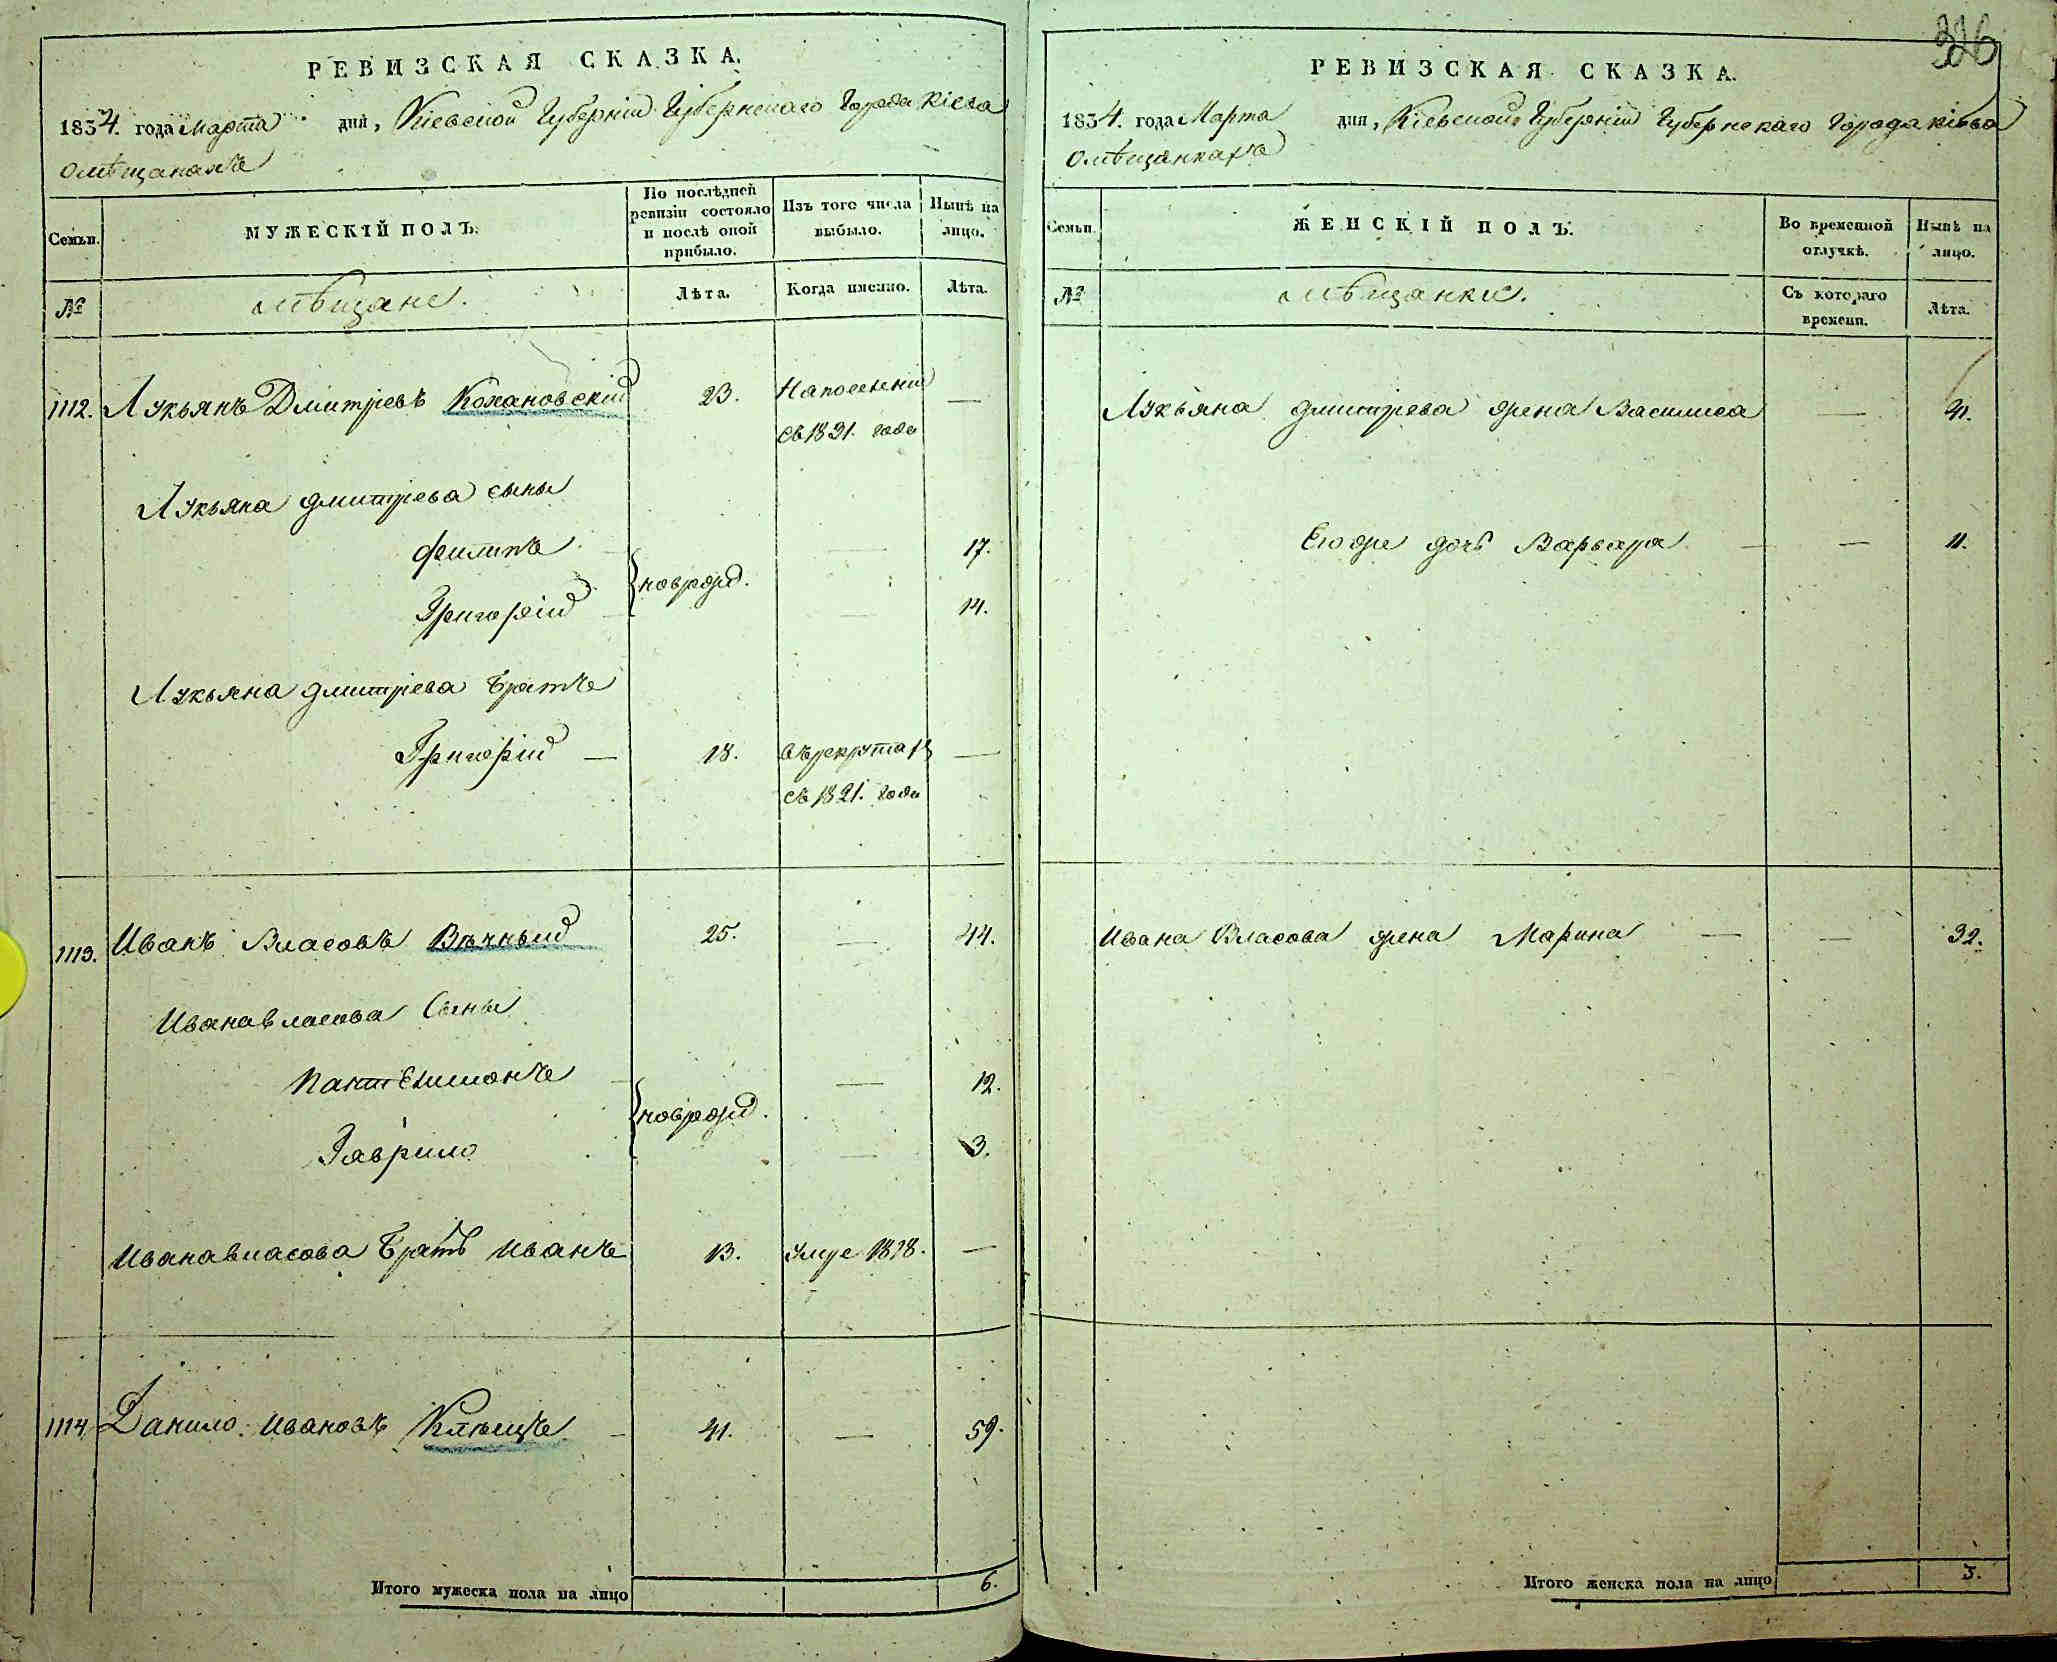 РЕВИЗСКАЯ СКАЗКА.
1834. года Марта дня, Киевской Губерніи Губернскаго Города Кіева
О мѣщанахъ
Семьи.
МУЖЕСКІЙ ПОЛЪ.
По послѣдней ревизіи состояло и послѣ оной прибыло.
Изъ того числа выбыло.
Нынѣ на лицо.
№
мѣщане.
Лѣта.
Когда именно.
Лѣта.
1112. Лукьянъ Дмитріевъ Кохановскій 23. На поселеніи —
съ 1821. года
Лукьяна Дмитріева сыны
Филипъ — 17.
новрожд.
Григорій — 14.
Лукьяна Дмитріева братъ
Григорій — 18. въ рекрутахъ —
съ 1821. года
1113. Иванъ Власовъ Вѣчный 25. — 44.
Ивана Власова Сыны
Пантелимонъ — 12.
новрожд.
Гаврило — 3.
Ивана Власова братъ Иванъ 13. умре 1828. —
1114 Данило Ивановъ Клѣщъ — 41. — 59.
Итого мужеска пола на лицо 6.
326
РЕВИЗСКАЯ СКАЗКА.
1834. года Марта дня, Кіевской Губерніи Губернскаго Города Кіева
О мѣщанкахъ
Семьи.
ЖЕНСКІЙ ПОЛЪ.
Во временной отлучкѣ.
Нынѣ на лицо.
№
мѣщанки.
Съ котораго времени.
Лѣта.
Лукьяна Дмитріева жена Василиса — 41.
Его же дочь Варвара — — 11.
Ивана Власова жена Марина — — 32.
Итого женска пола на лицо 3.